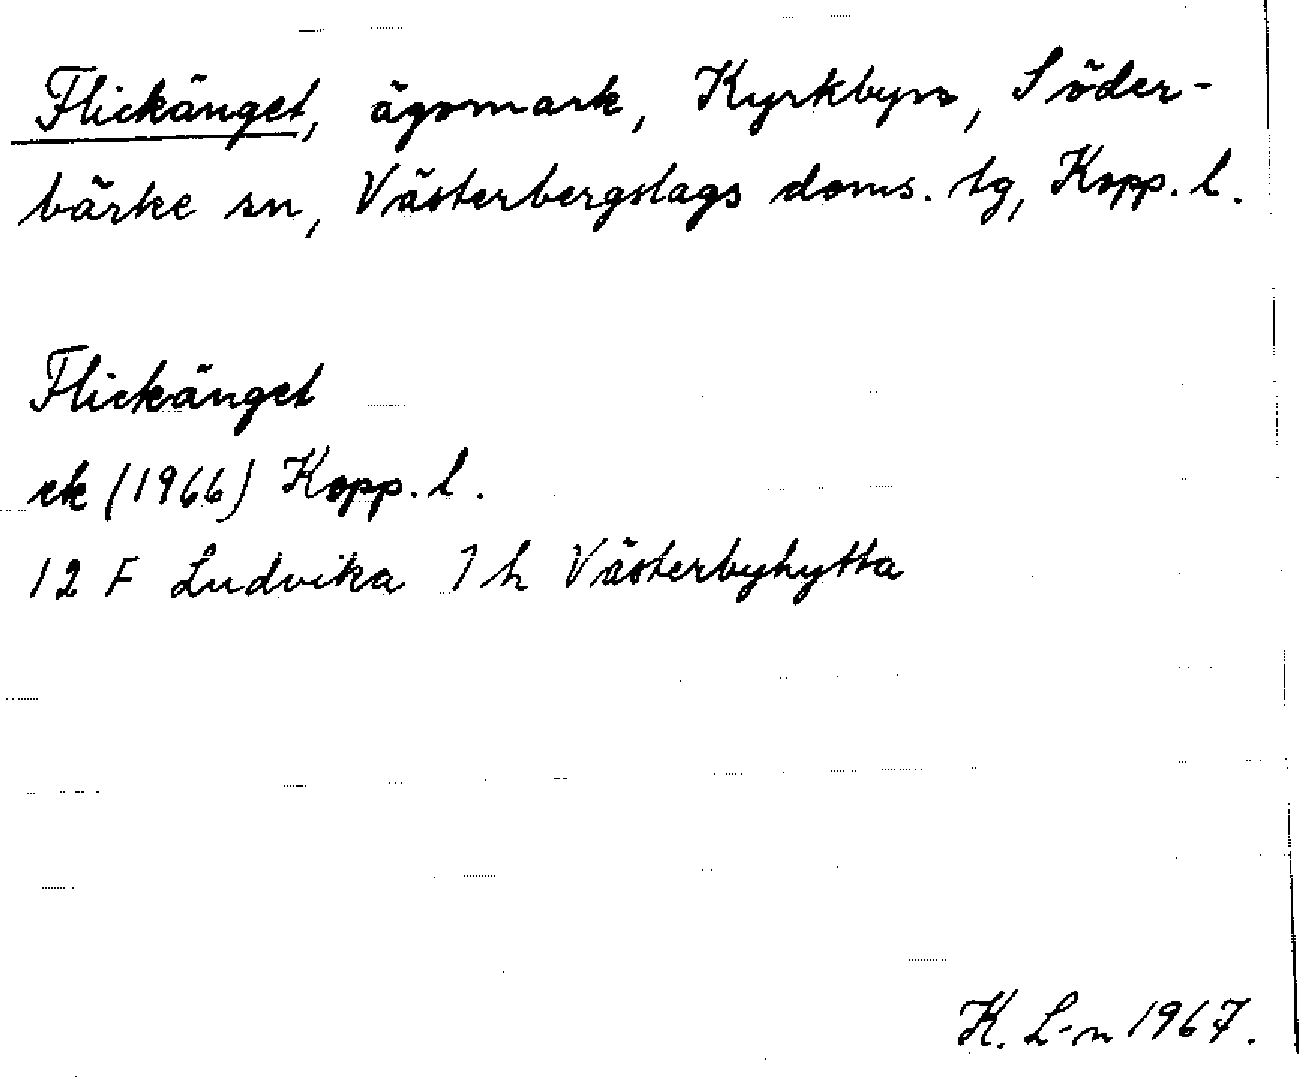 Flickänget, ägomark, Kyrkbyn, Söder-
bärke sn, Västerbergslags doms. tg, Kopp. l.
Flickänget
ek (1966) Kopp. l.
12 F Ludvika 7 h Västerbyhytta
K. L-n 1967.